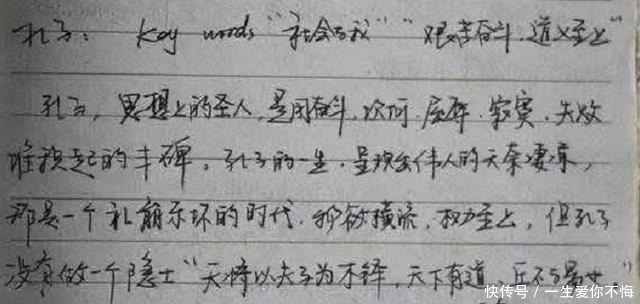 孔子： Key words "社会与我" "艰苦奋斗，道义至上"
孔子，思想上的圣人，是用奋斗、坎坷、屈辱、寂寞、失败
堆积起的丰碑。孔子的一生，呈现出伟人的天荣凄凉，
那是一个礼崩乐坏的时代，物欲横流，权力至上，但孔子
没有做一个隐士"天将以夫子为木铎，天下有道，丘不与易也"
快传号／一生爱你不悔